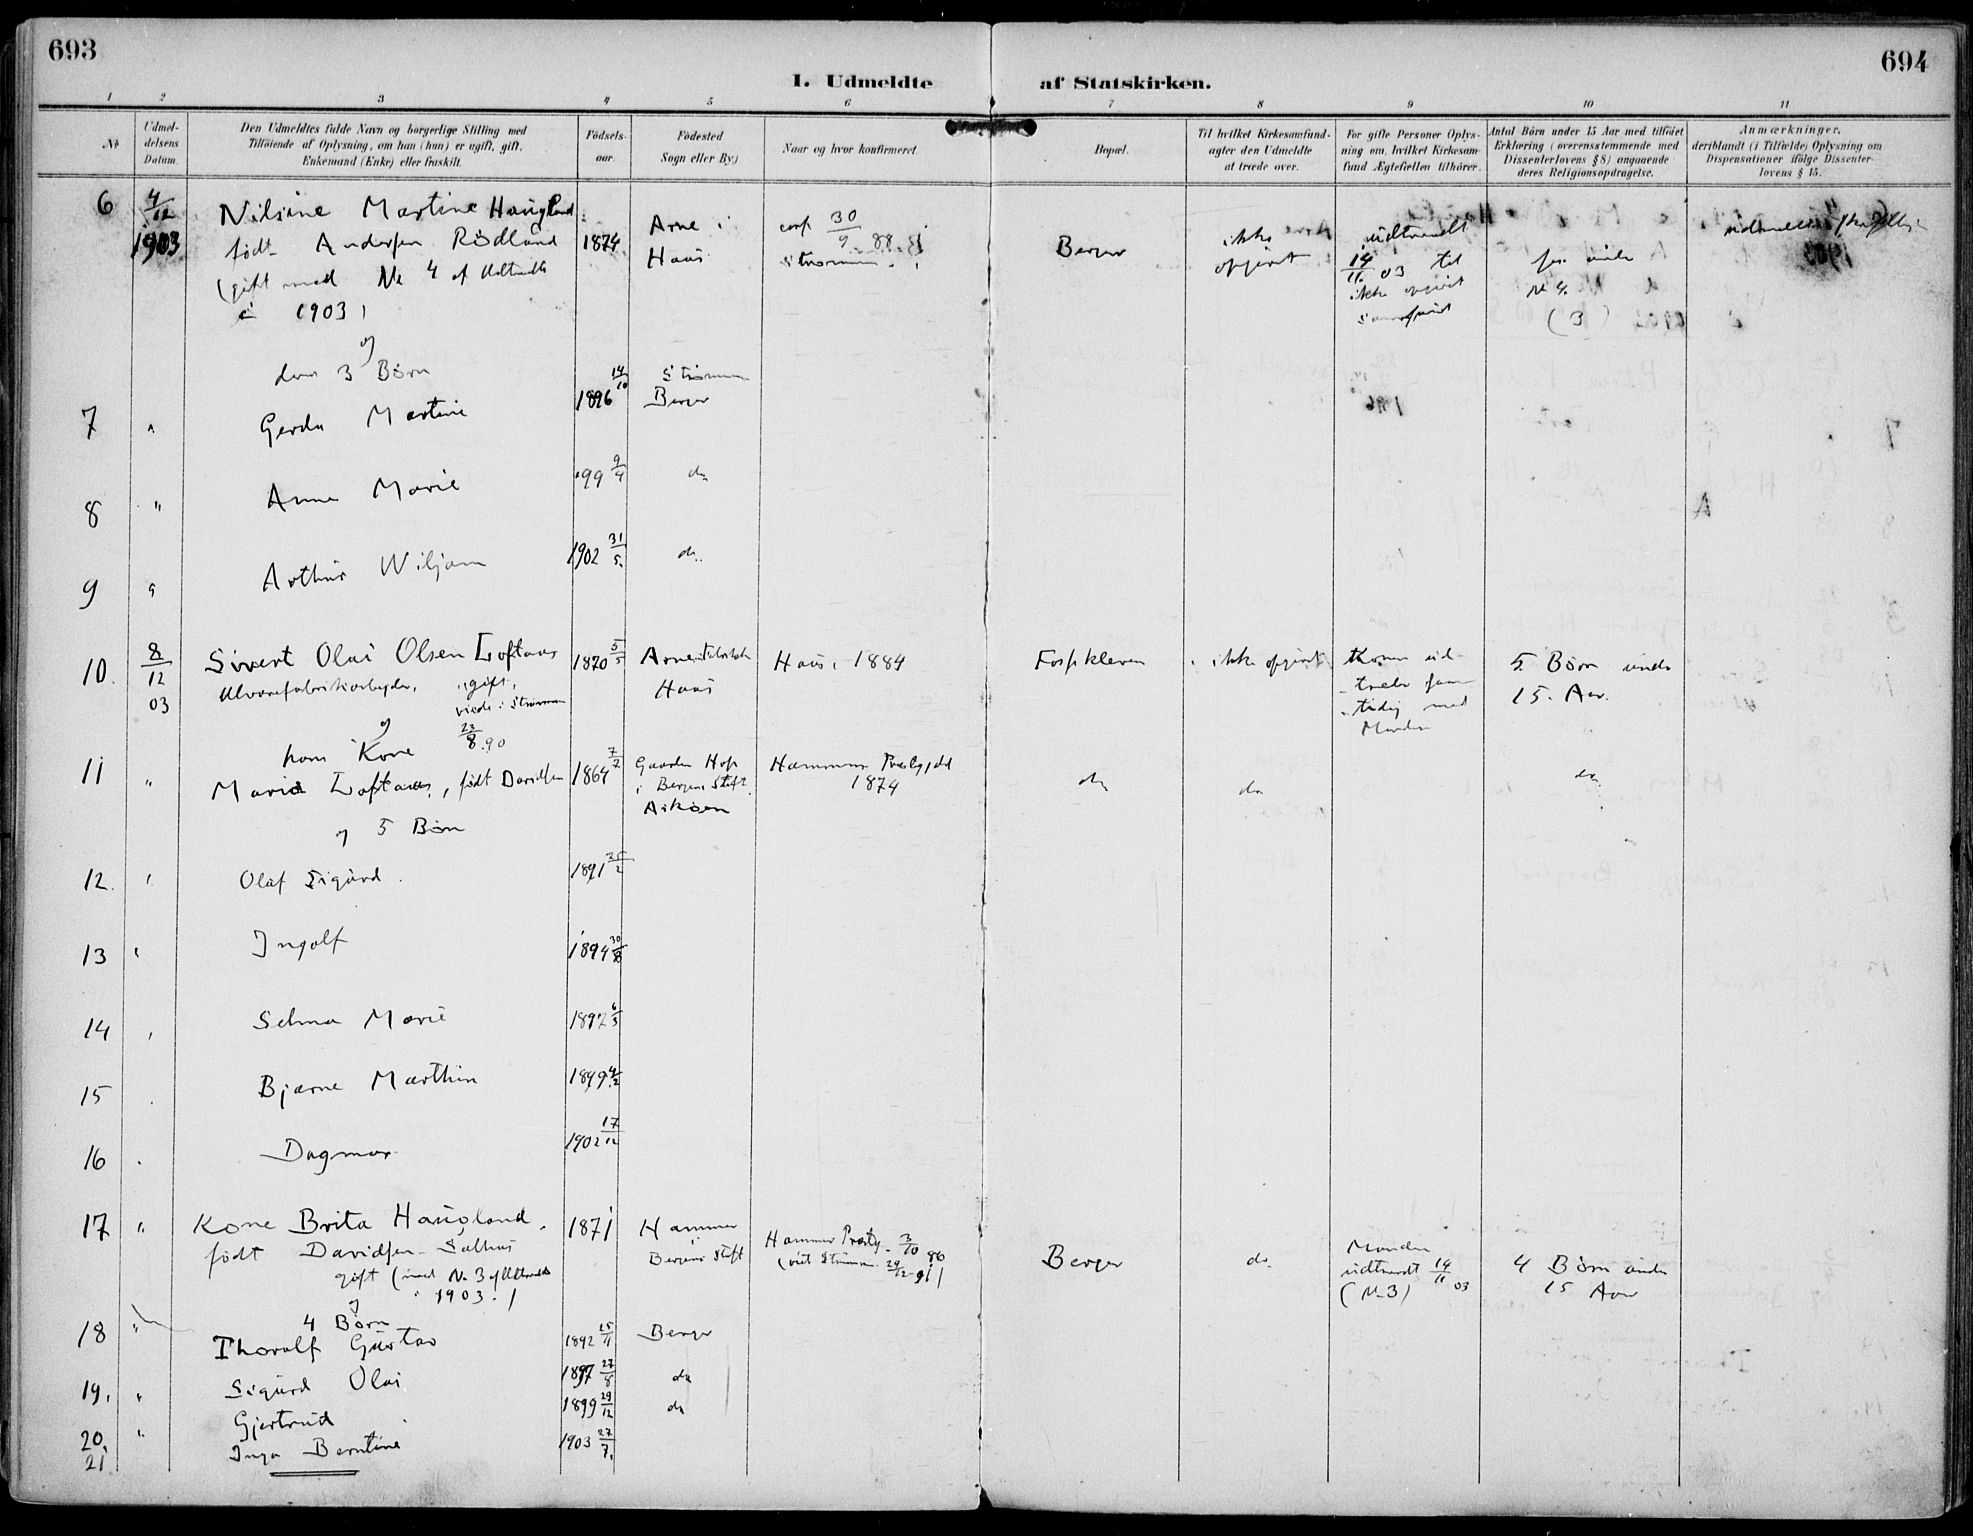 693
694
I. Udmeldte af Statskirken.
1 2 3 4 5 6 7 8 9 10 11
No
Udmeldelsens Datum.
Den Udmeldtes fulde Navn og borgerlige Stilling med
Tilføiende af Oplysning, om han (hun) er ugift, gift,
Enkemand (Enke) eller fraskilt.
Fødselsaar.
Fødested
Sogn eller By)
Naar og hvor konfirmeret.
Bopæl.
Til hvilket Kirkesamfund
agter den Udmeldte
at træde over.
For gifte Personer Oplysning
om, hvilket Kirkesamfund
Ægtefællen tilhører.
Antal Børn under 15 Aar med tilføiet
Erklæring (overensstemmende med
Dissenterlovens § 8) angaaende
deres Religionsopdragelse.
Anmærkninger,
deriblandt (i Tilfælde) Oplysning om
Dispensationer ifølge Dissenterlovens
§ 15.
6 4/12 1903 Nilsine Martine Haugland
født Andersen Rödland 1874 Arne i Haus conf 30/9 88 i Strømmen. Berger ikke opgivet udtraadt
14/11 03 til
ikke opgivet
samfund
No 4.
(3)
(gift med No 4 af Udtraadte
i 1903)
og
deres 3 Børn
7 " Gerda Martine 1896 14/10 Strømmen
Berger
8 " Anna Marie 99 9/4 do
9 " Arthur Wiljam 1902 31/5. do.
10. 8/12 03 Sivert Olai Olsen Loftaas 1870 5/5 Arne
Haus Haus i 1884 Fossekleven ikke opgivet Konen udtræder
samtidig med
Manden 5 Børn under
15. Aar.
Ulvarefabrikarbeider, gift,
viede i Strømmen
23/8.90
og
hans Kone
11 " Maria Loftaas, født Davidsen 1864 7/2 Gaarden Hop
i Bergens Stift.
Askøen Hammer Præstegjeld
1874 do do do
og 5 Børn
12. " Olaf Sigurd. 1891 25/2
13 " Ingolf 1894 30/8
14 " Selma Marie 1897 6/5
15 Bjarne Marthin 1899 4/2
16 Dagmar 1902 17/12
17 " Kone Brita Haugland. 1871 Hammer
i
Bergens Stift Hammer Præstg. 3/10 86
(viet Strømmen 29/12 91) Berger do. Manden
udtraadt 14/11 03
(No 3) 4 Børn under
15 Aar
født Davidsen Salhus
gift (med No. 3 af Udtraadte
i 1903.)
og
4 Børn
18 " Thoralf Gustav 1892 25/11 Berger
19. " Sigurd Olai 1897 27/8 do
20. " Gjertrud 1899 29/12 do
21 Inga Berntine 1903 27/7.